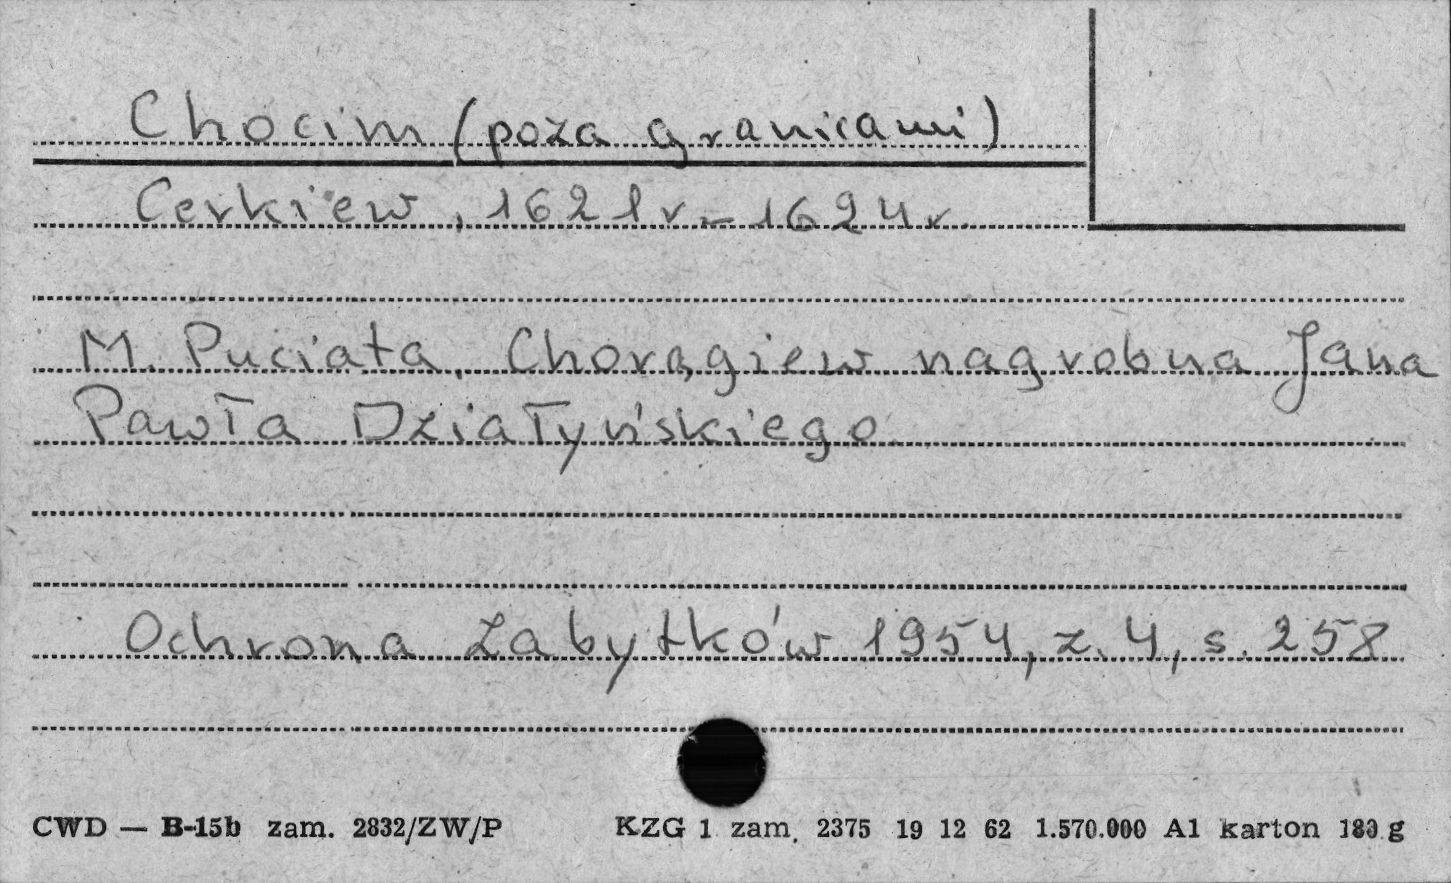 Chocim (poza granicami)
Cerkiew, 1621 r. – 1624 r.
M. Puciata, Chorągiew nagrobna Jana
Pawła Działyńskiego
Ochrona Zabytków 1954, z. 4, s. 258
CWD — B-15b zam. 2832/ZW/P KZG 1 zam. 2375 19 12 62 1.570.000 A1 karton 180 g